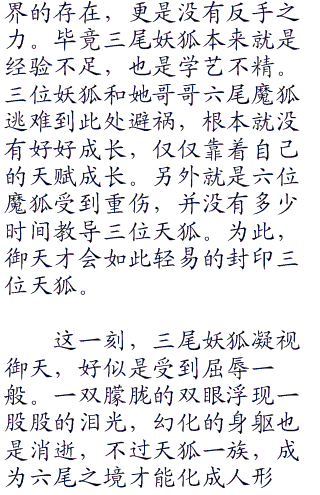 界的存在，更是没有反手之
力。毕竟三尾妖狐本来就是
经验不足，也是学艺不精。
三位妖狐和她哥哥六尾魔狐
逃难到此处避祸，根本就没
有好好成长，仅仅靠着自己
的天赋成长。另外就是六位
魔狐受到重伤，并没有多少
时间教导三位天狐。为此，
御天才会如此轻易的封印三
位天狐。
这一刻，三尾妖狐凝视
御天，好似是受到屈辱一
般。一双朦胧的双眼浮现一
股股的泪光，幻化的身躯也
是消逝，不过天狐一族，成
为六尾之境才能化成人形